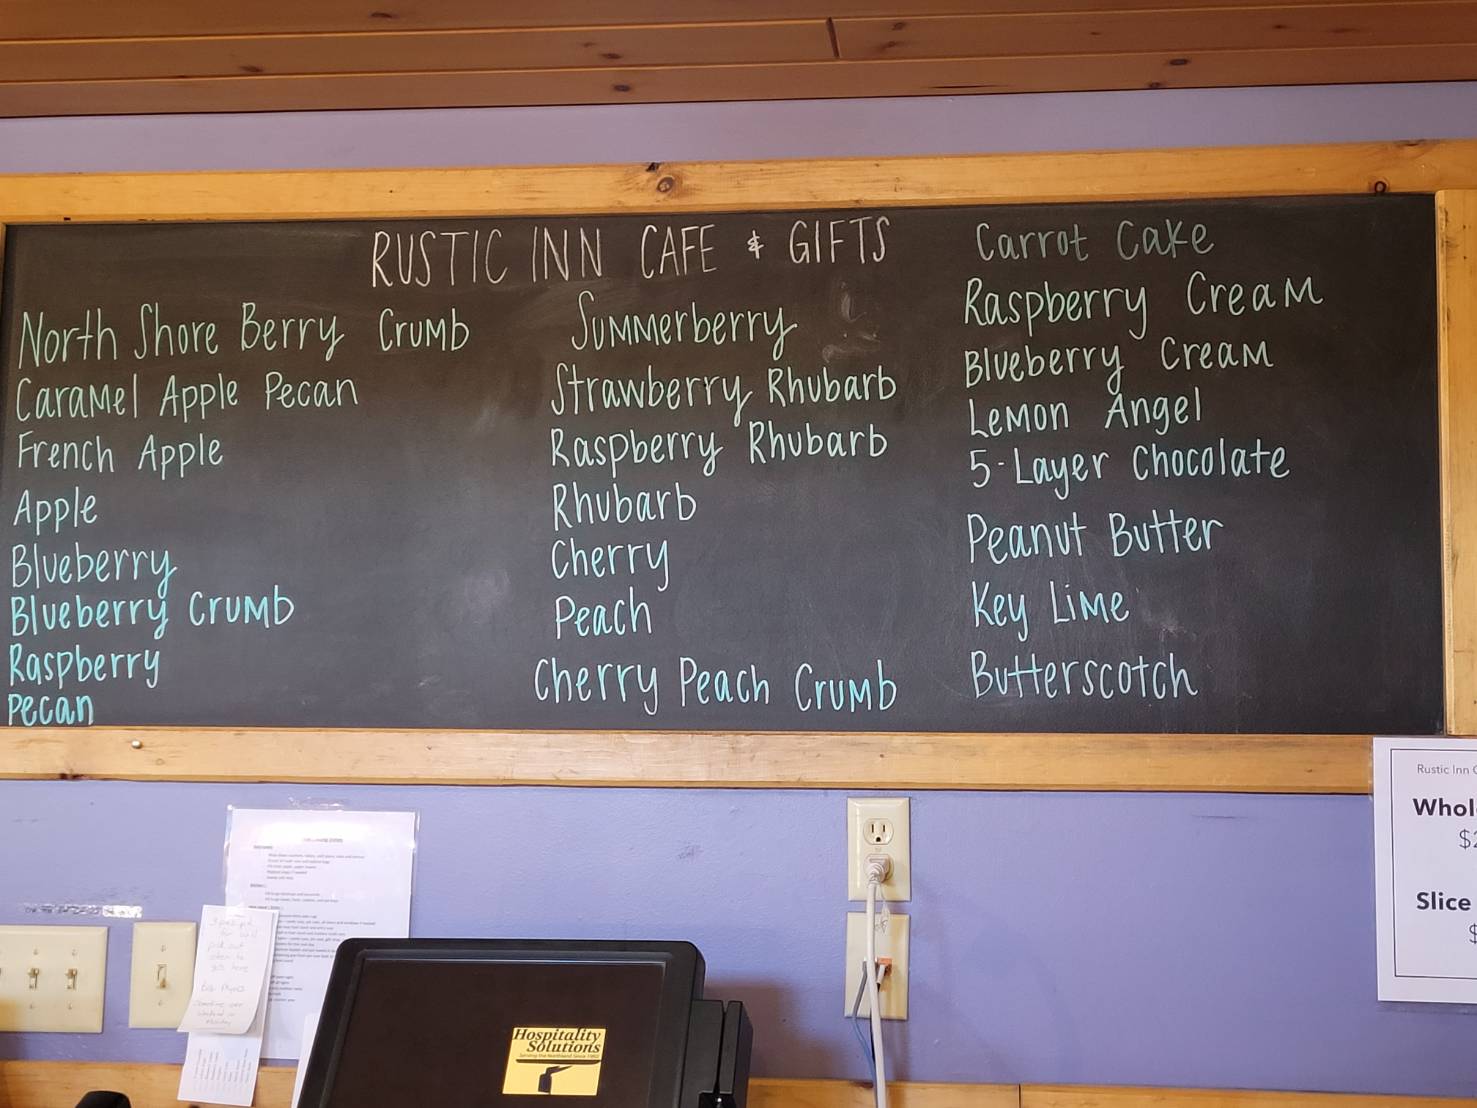 RUSTIC INN CAFE & GIFTS
North Shore Berry Crumb
Caramel Apple Pecan
French Apple
Apple
Blueberry
Blueberry Crumb
Raspberry
Pecan
Summerberry
Strawberry Rhubarb
Raspberry Rhubarb
Rhubarb
Cherry
Peach
Cherry Peach Crumb
Carrot Cake
Raspberry Cream
Blueberry Cream
Lemon Angel
5-Layer Chocolate
Peanut Butter
Key Lime
Butterscotch
Rustic Inn
Whol
Slice
$
Hospitality
Solutions
Serving the Northland Since 1982